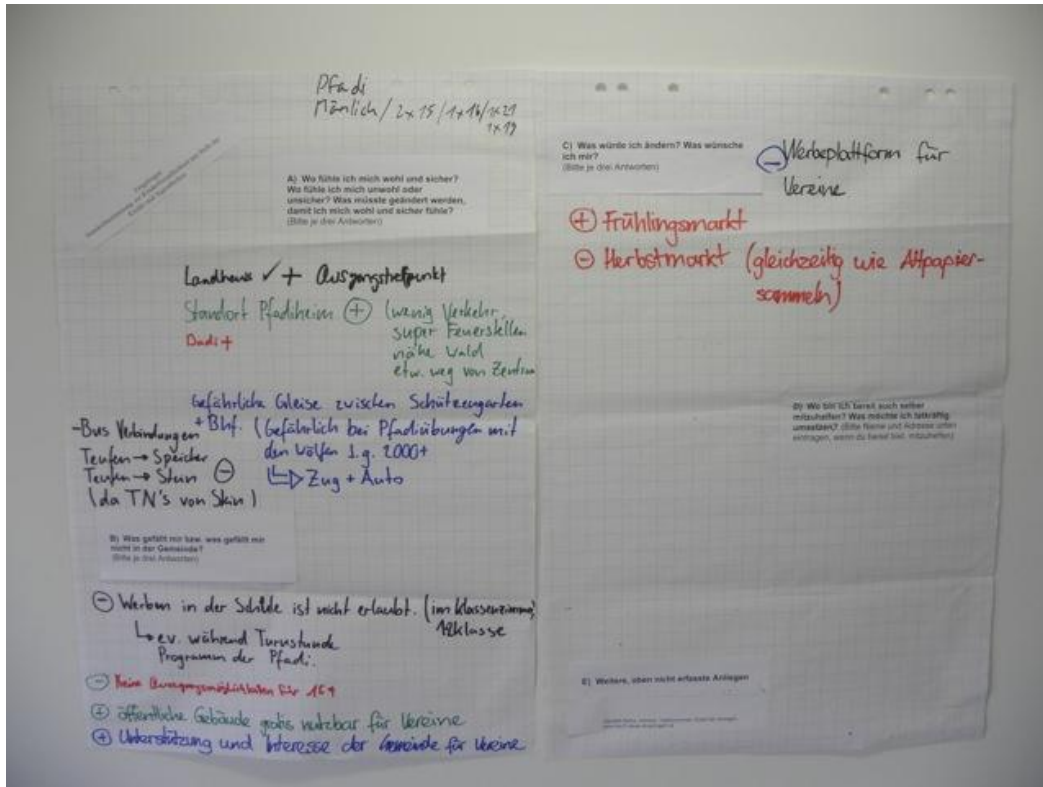 Pfadi
Männlich / 2x15 / 1x16 / 1x21
1x19
A) Wo fühle ich mich wohl und sicher?
Wo fühle ich mich unwohl oder
unsicher? Was müsste geändert werden,
damit ich mich wohl und sicher fühle?
(Bitte je drei Antworten)
Landhaus ✓ + Ausgangstreffpunkt
Standort Pfadiheim + (wenig Verkehr,
super Feuerstellen
nähe Wald
etw. weg von Zentrum
Dädi +
Gefährliche Gleise zwischen Schützengarten
+ Bhf. (Gefährlich bei Pfadiübungen mit
den Wölfen J.g. 2000+
Zug + Auto
- Bus Verbindungen
Teufen → Speicher
Teufen → Stein -
(da TN's von Stein)
B) Was gefällt mir bzw. was gefällt mir
nicht in der Gemeinde?
(Bitte je drei Antworten)
- Werben in der Schule ist nicht erlaubt. (im Klassenzimmer)
1&klasse
ev. während Turnstunde
Programm der Pfadi.
- Keine Ausgangsmöglichkeiten für 16+
+ öffentliche Gebäude gratis nutzbar für Vereine
+ Unterstützung und Interesse der Gemeinde für Vereine
C) Was würde ich ändern? Was wünsche
ich mir?
(Bitte je drei Antworten)
- Werbeplattform für
Vereine
+ Frühlingsmarkt
- Herbstmarkt (gleichzeitig wie Altpapier-
sammeln)
D) Wo bin ich bereit auch selber
mitzuhelfen? Was möchte ich tatkräftig
umsetzen? (Bitte Name und Adresse unten
eintragen, wenn du bereit bist, mitzuhelfen)
E) Weitere, oben nicht erfasste Anliegen